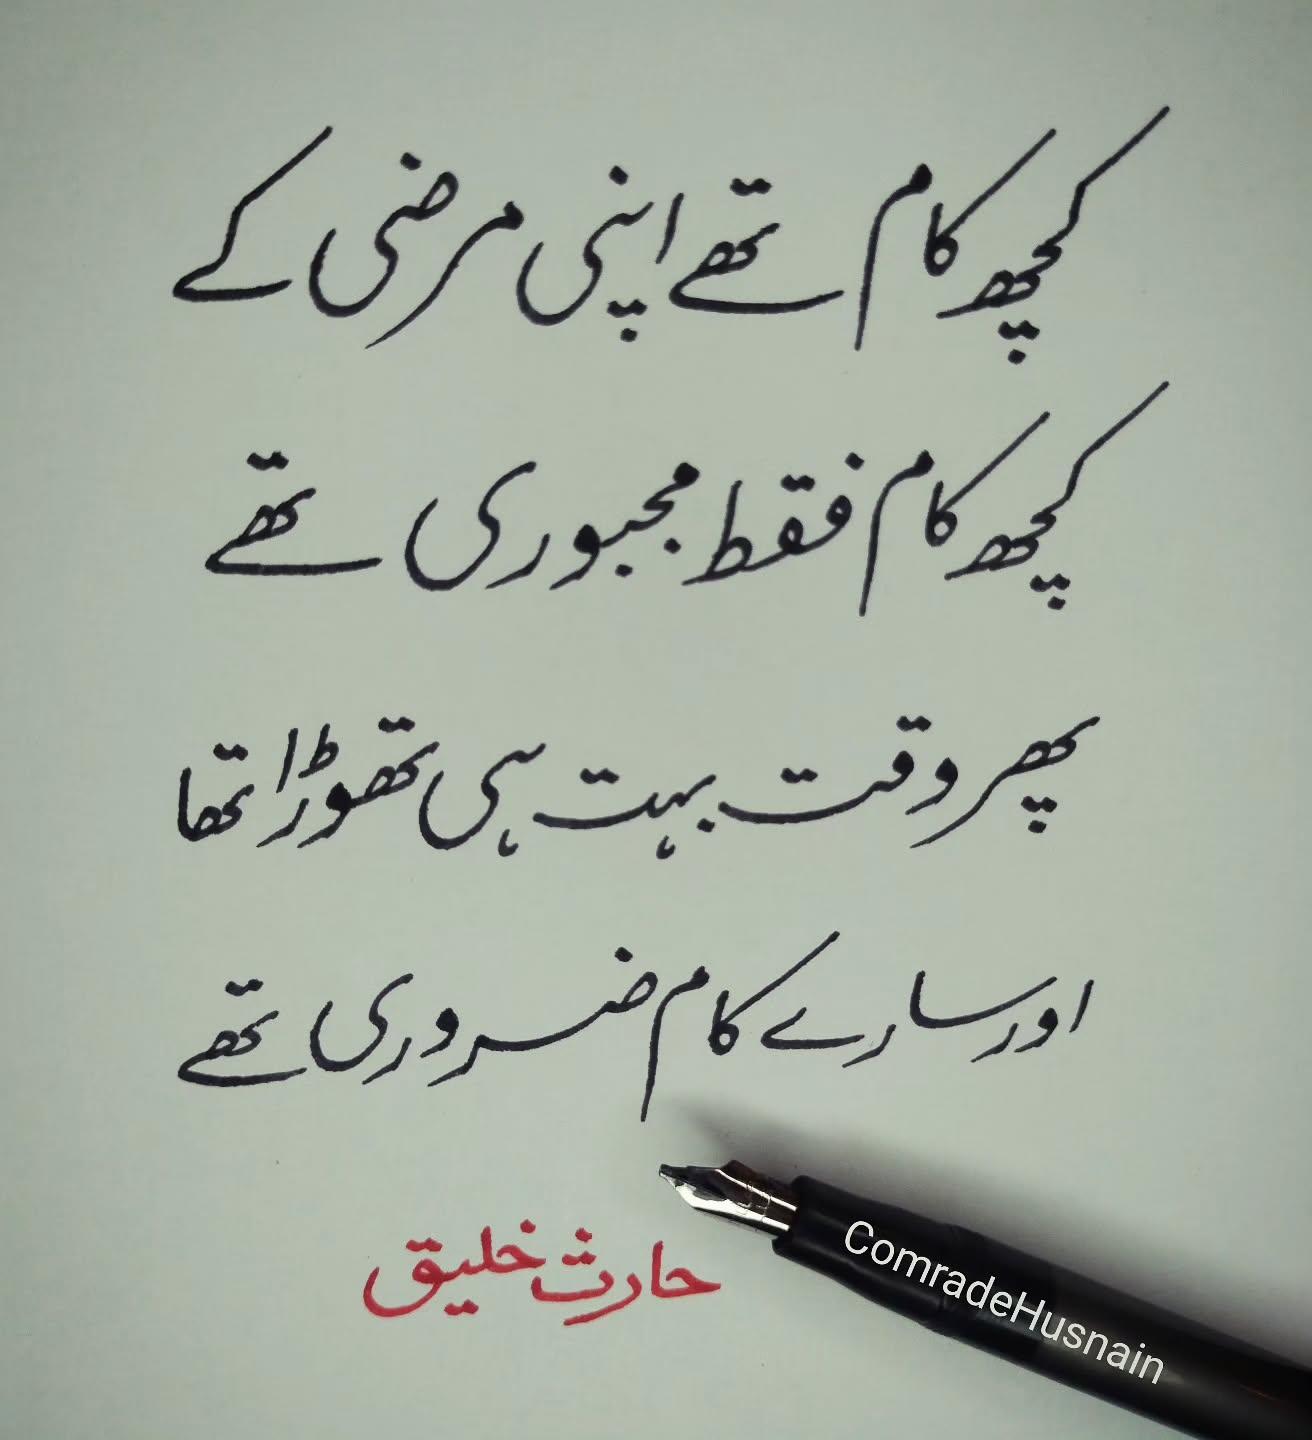 کچھ کام تھے اپنی مرضی کے
کچھ کام فقط مجبوری تھے
پھر وقت بہت ہی تھوڑا تھا
اور سارے کام ضروری تھے
حارث خلیق
ComradeHusnain